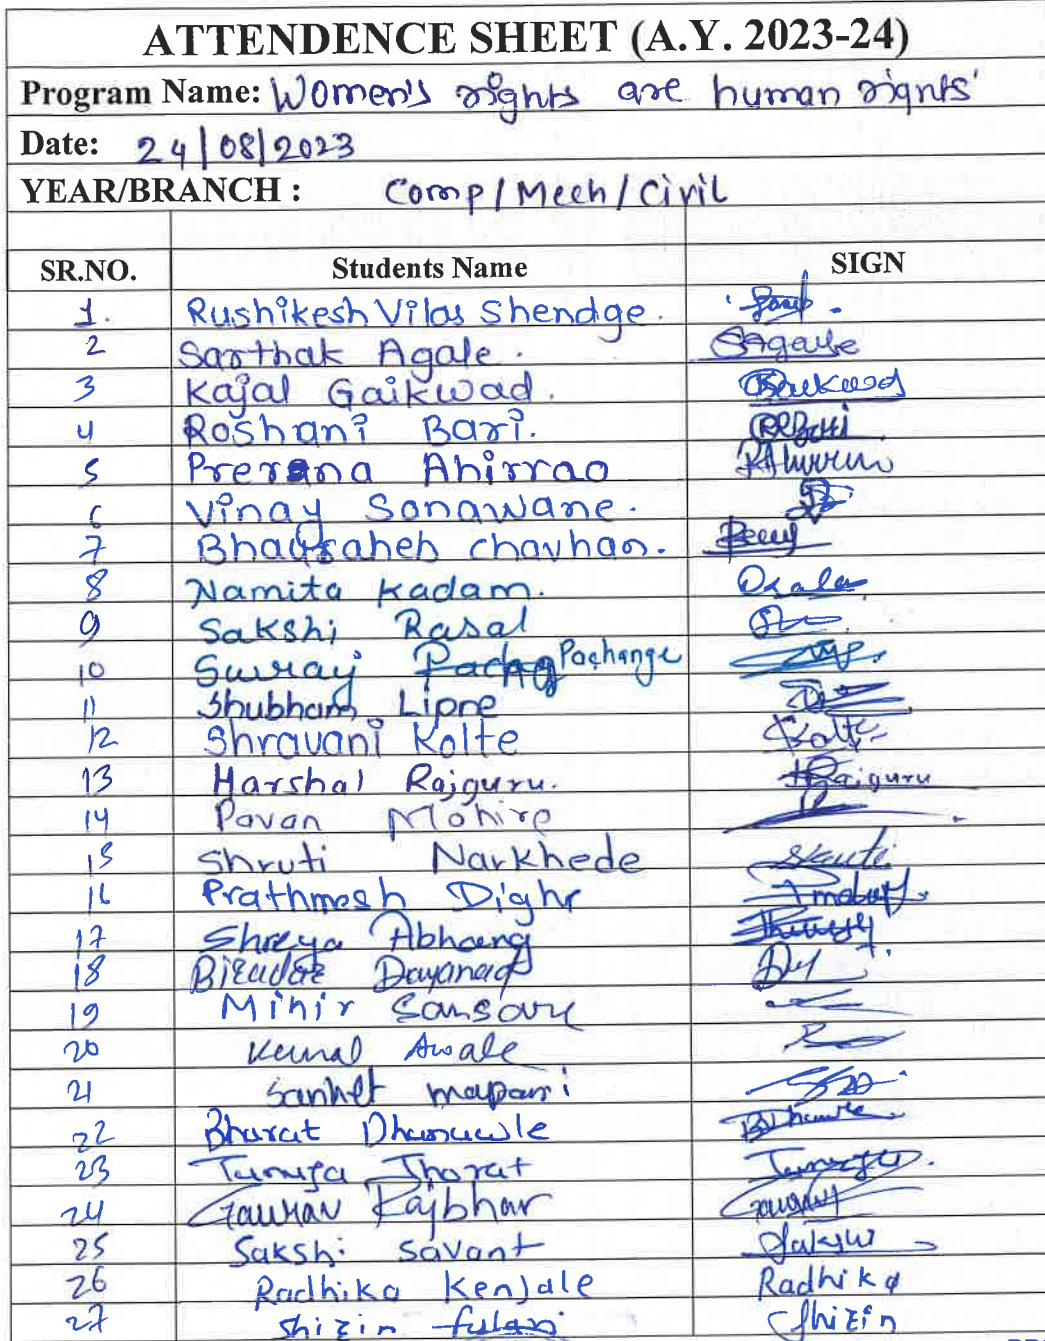 ATTENDENCE SHEET (A.Y. 2023-24)
Program Name: Women's rights are human rights'
Date: 24/08/2023
YEAR/BRANCH : Comp/Mech/Civil
SR.NO. Students Name SIGN
1. Rushikesh Vilas Shendge.
2 Sarthak Agale. SAgale
3 Kajal Gaikwad. Gaikwad
4 Roshani Bari. RRBari
5 Prerana Ahirrao
6 Vinay Sonawane.
7 Bhausaheb Chavhan.
8 Namita Kadam.
9 Sakshi Rasal
10 Suuraj Pachange
11 Shubham Lipne
12 Shravani Kolte Kolte
13 Harshal Rajguru. HRajguru
14 Pavan Mohire
15 Shruti Narkhede
16 Prathmesh Dighe
17 Shreya Abhang
18 Biradar Dayanad
19 Mihir Sansare
20 Kunal Awale
21 Sanket mapari
22 Bharat Dhanawle
23 Tanuja Thorat Tanuja.
24 Gaurav Rajbhar Gaurav
25 Sakshi Savant Sakshi
26 Radhika Kenjale Radhika
27 Shizin fulari Shizin